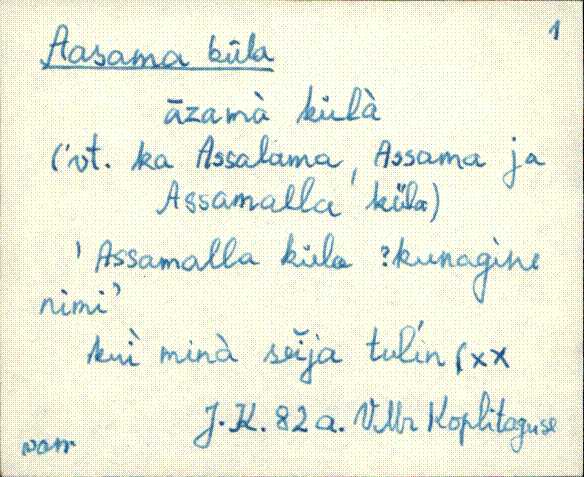 1
Aasama küla
āzamà külà
(vt. ka Assalama, Assama ja
Assamalla küla)
'Assamalla küla ?kunagine
nimi'
kuì minà sei̯ja tulin (xx
J.K. 82 a. VMr Koplitaguse